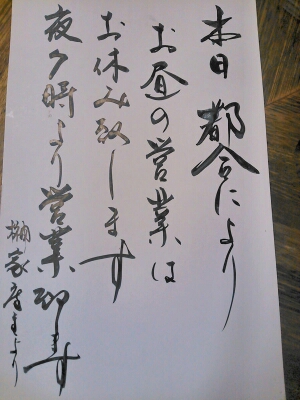 本日都合により
お昼の営業は
お休み致します
夜夕時より営業致します
家店主より